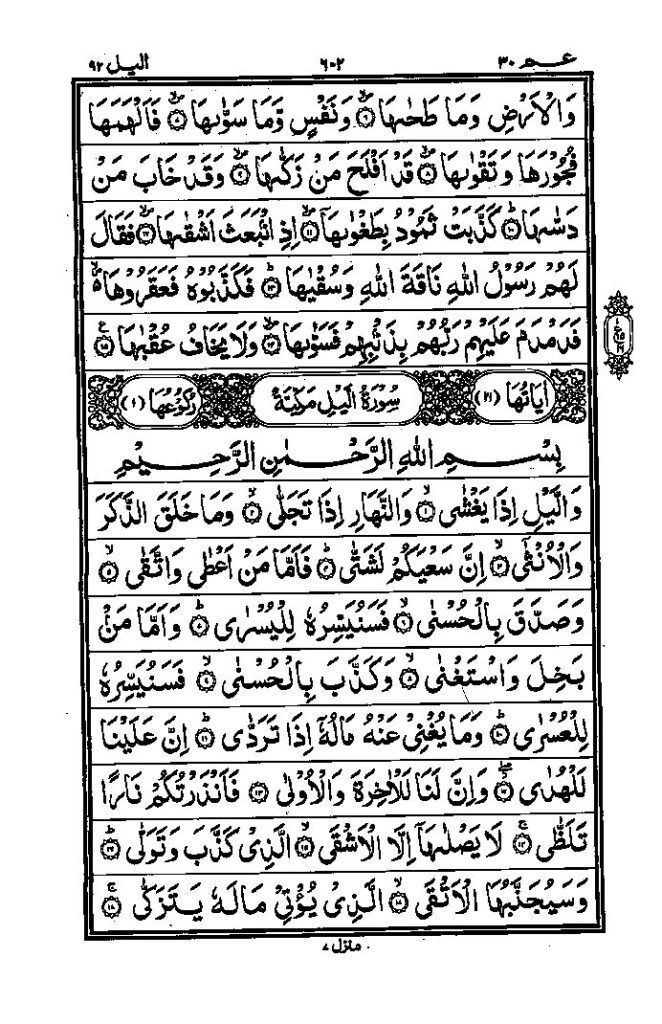 عـمـ ۳۰ ٦٠٢ الیل ۹۲
وَالْاَرْضِ وَمَا طَحٰىهَا ۶ وَنَفْسٍ وَّمَا سَوّٰىهَا ۷ فَاَلْهَمَهَا
فُجُوْرَهَا وَتَقْوٰىهَا ۸ قَدْ اَفْلَحَ مَنْ زَكّٰىهَا ۹ وَقَدْ خَابَ مَنْ
دَسّٰىهَا ۱۰ كَذَّبَتْ ثَمُوْدُ بِطَغْوٰىهَآ ۱۱ اِذِ انْۢبَعَثَ اَشْقٰىهَا ۱۲ فَقَالَ
لَهُمْ رَسُوْلُ اللّٰهِ نَاقَةَ اللّٰهِ وَسُقْيٰهَا ۱۳ فَكَذَّبُوْهُ فَعَقَرُوْهَا
فَدَمْدَمَ عَلَيْهِمْ رَبُّهُمْ بِذَنْۢبِهِمْ فَسَوّٰىهَا ۱۴ وَلَا يَخَافُ عُقْبٰهَا ۱۵
اٰيَاتُهَا (۲۱) سُوْرَةُ الَّيْلِ مَكِّيَّةٌ رُكُوْعُهَا (۱)
بِسْمِ اللّٰهِ الرَّحْمٰنِ الرَّحِيْمِ
وَالَّيْلِ اِذَا يَغْشٰى ۱ وَالنَّهَارِ اِذَا تَجَلّٰى ۲ وَمَا خَلَقَ الذَّكَرَ
وَالْاُنْثٰٓى ۳ اِنَّ سَعْيَكُمْ لَشَتّٰى ۴ فَاَمَّا مَنْ اَعْطٰى وَاتَّقٰى ۵
وَصَدَّقَ بِالْحُسْنٰى ۶ فَسَنُيَسِّرُهٗ لِلْيُسْرٰى ۷ وَاَمَّا مَنْۢ
بَخِلَ وَاسْتَغْنٰى ۸ وَكَذَّبَ بِالْحُسْنٰى ۹ فَسَنُيَسِّرُهٗ
لِلْعُسْرٰى ۱۰ وَمَا يُغْنِىْ عَنْهُ مَالُهٗٓ اِذَا تَرَدّٰى ۱۱ اِنَّ عَلَيْنَا
لَلْهُدٰى ۱۲ وَاِنَّ لَنَا لَلْاٰخِرَةَ وَالْاُوْلٰى ۱۳ فَاَنْذَرْتُكُمْ نَارًا
تَلَظّٰى ۱۴ لَا يَصْلٰىهَآ اِلَّا الْاَشْقَى ۱۵ الَّذِىْ كَذَّبَ وَتَوَلّٰى ۱۶
وَسَيُجَنَّبُهَا الْاَتْقَى ۱۷ الَّذِىْ يُؤْتِىْ مَالَهٗ يَتَزَكّٰى ۱۸
منزل ۷